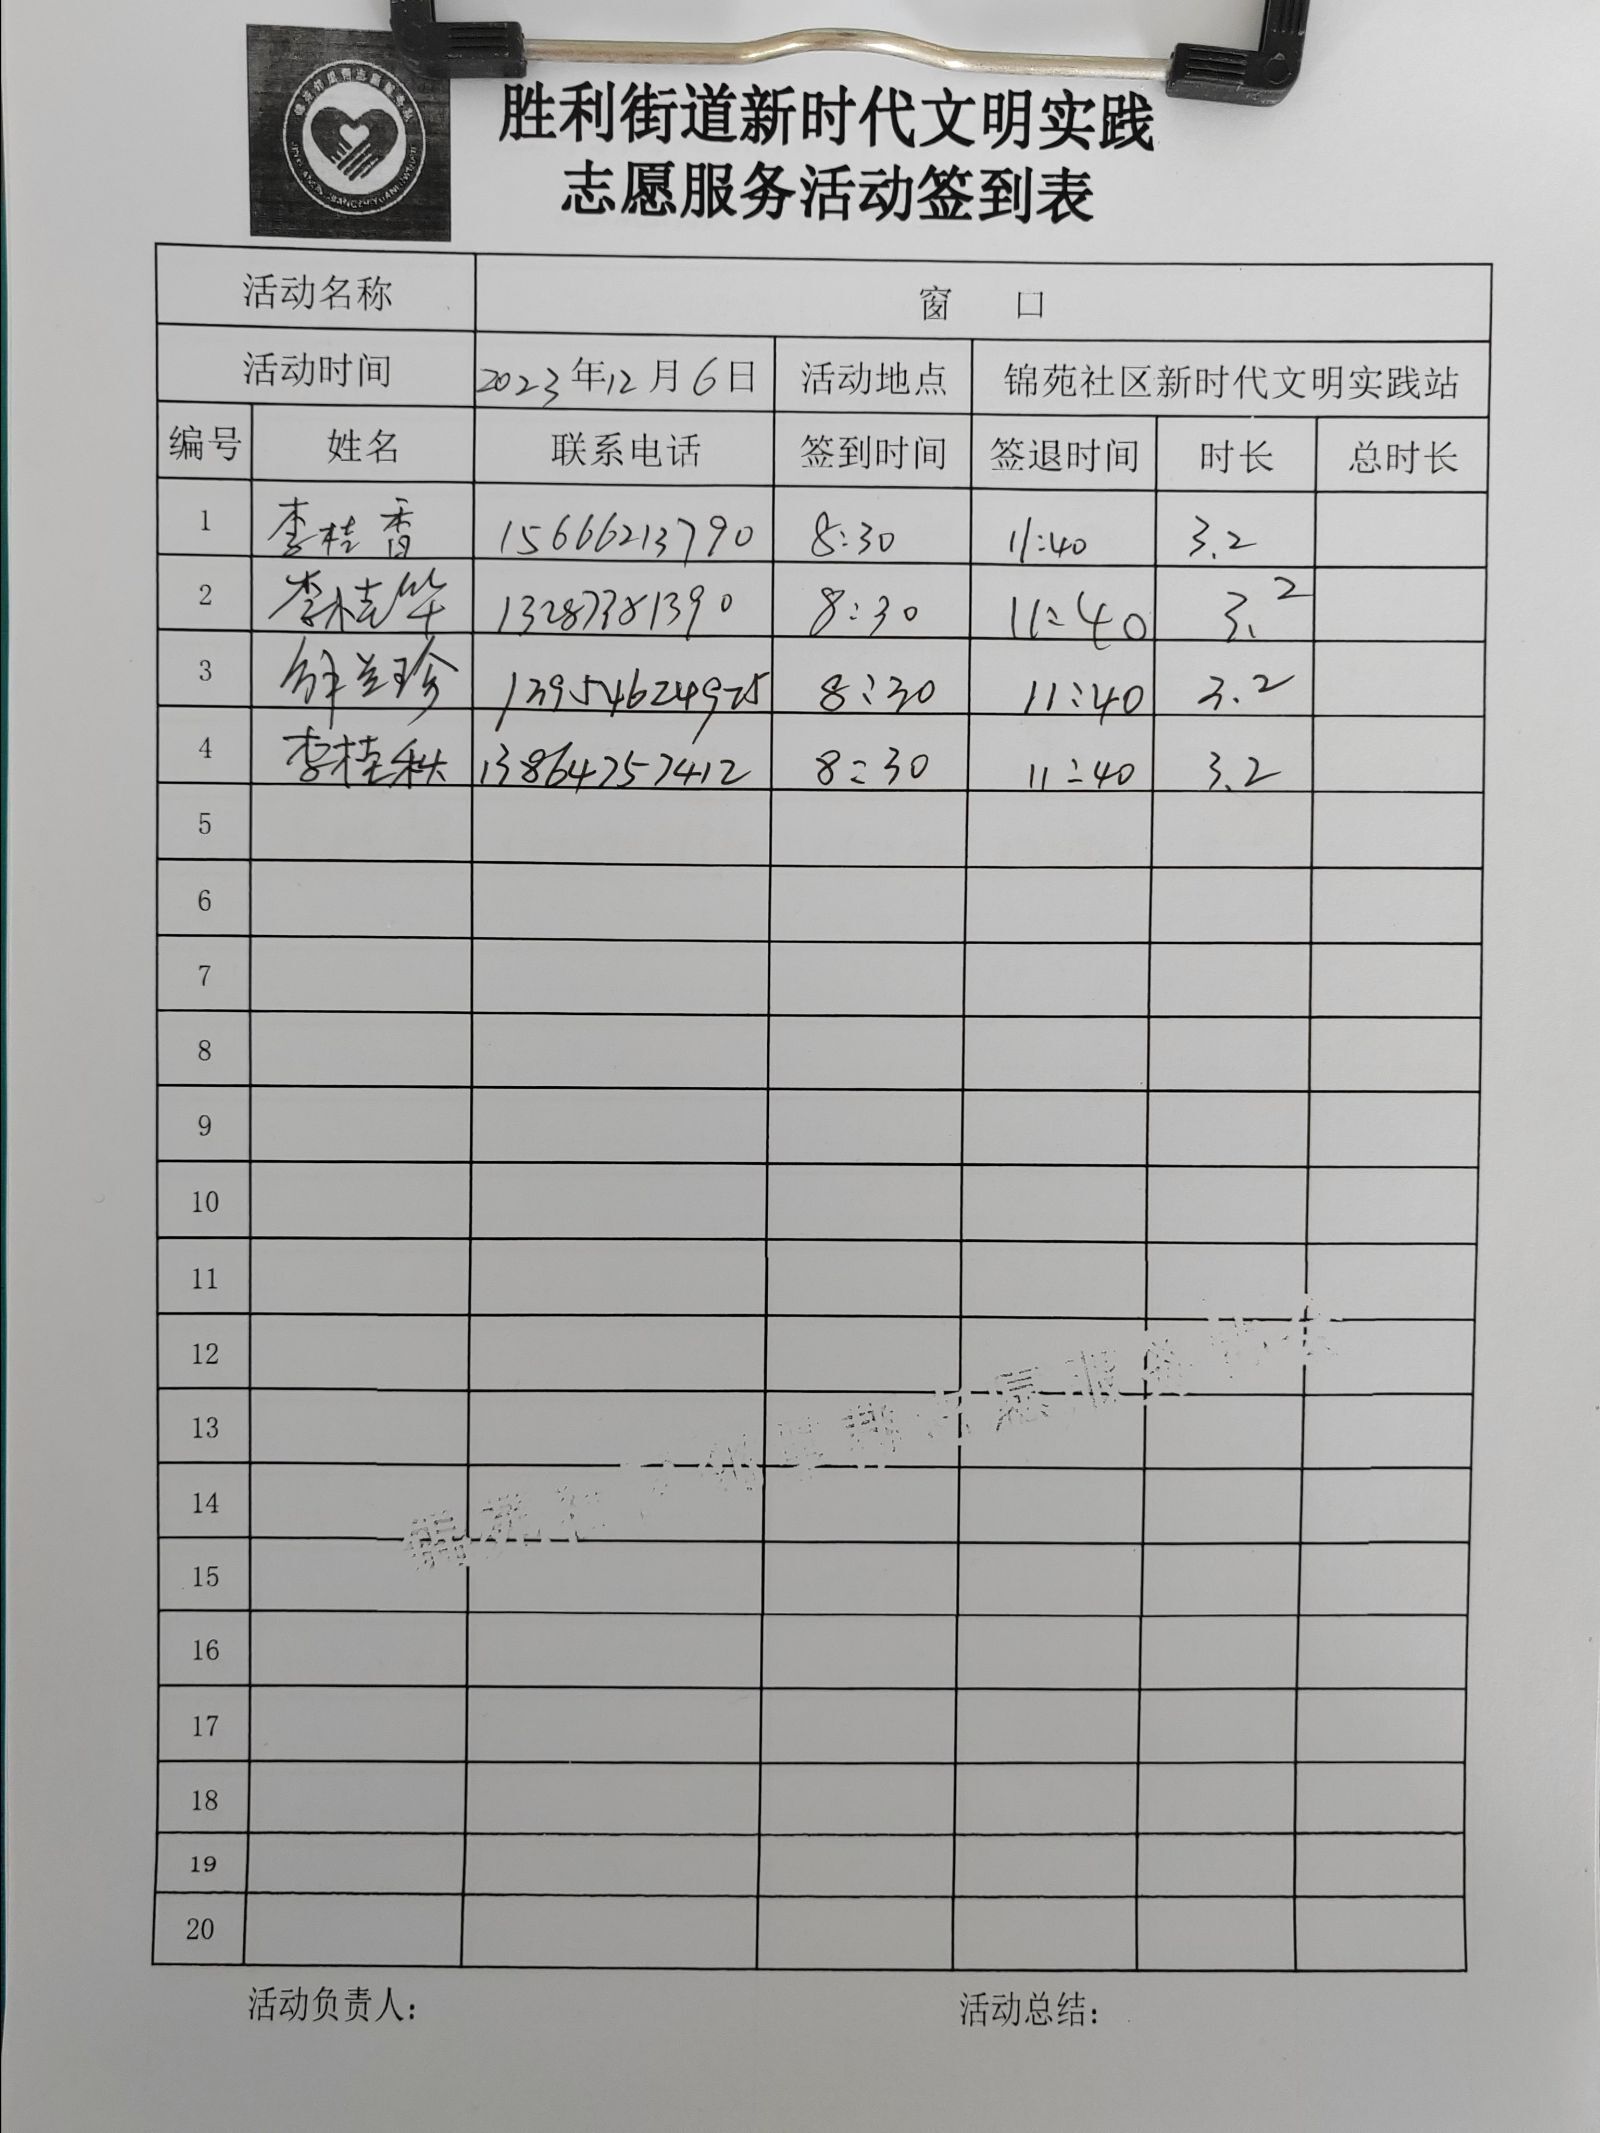 胜利街道新时代文明实践
志愿服务活动签到表
活动名称 窗 口
活动时间 2023年12月6日 活动地点 锦苑社区新时代文明实践站
编号 姓名 联系电话 签到时间 签退时间 时长 总时长
1 李桂香 15666213790 8:30 11:40 3.2
2 李桂华 13287381390 8:30 11:40 3.2
3 兰珍 13954624975 8:30 11:40 3.2
4 李桂秋 13864757412 8:30 11:40 3.2
5
6
7
8
9
10
11
12
13
14
15
16
17
18
19
20
活动负责人: 活动总结: